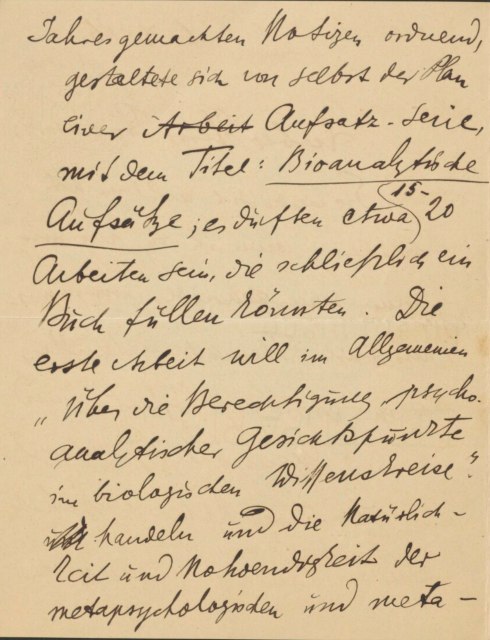 Jahres gemachten Notizen ordnend,
gestaltete sich von selbst der Plan
einer Arbeit Aufsatz-Serie,
mit dem Titel: Bioanalytische
15-
Aufsätze; es dürften etwa 20
Arbeiten sein, die schließlich ein
Buch füllen könnten. Die
erste Arbeit will im Allgemeinen
„Über die Berechtigung psycho-
analytischer Gesichtspunkte
im biologischen Wissenskreise“
handeln und die Natürlich-
keit und Notwendigkeit der
metapsychologischen und meta-